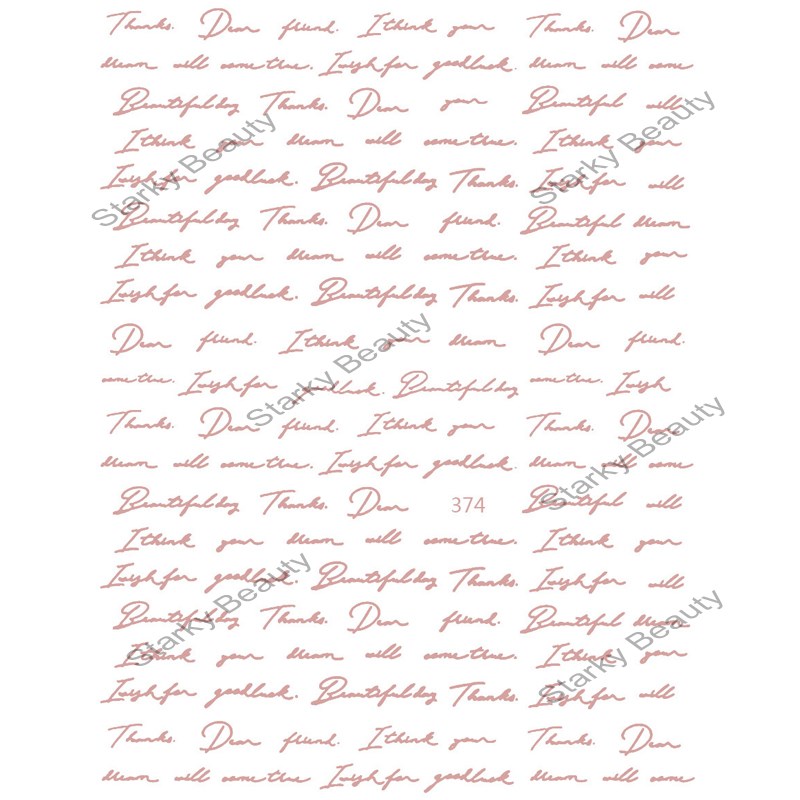 Thanks. Dear friend. I think your Thanks. Dear
dream will come true. I wish for good luck. dream will come
Beautiful day Thanks. Dear your Beautiful will
I think your dream will come true. I think your
I wish for good luck. Beautiful day Thanks. I wish for will
Beautiful day Thanks. Dear friend. Beautiful dream
I think your dream will come true. I think your
I wish for good luck. Beautiful day Thanks. I wish for will
Dear friend. I think your dream Dear friend.
come true. I wish for good luck. Beautiful day come true. I wish
Thanks. Dear friend. I think your Thanks. Dear
dream will come true. I wish for good luck. dream will come
Beautiful day Thanks. Dear 374 Beautiful will
I think your dream will come true. I think your
I wish for good luck. Beautiful day Thanks. I wish for will
Beautiful day Thanks. Dear friend. Beautiful dream
I think your dream will come true. I think your
I wish for good luck. Beautiful day Thanks. I wish for will
Thanks. Dear friend. I think your Thanks. Dear
dream will come true I wish for good luck dream will come
Starky Beauty
Starky Beauty
Starky Beauty
Starky Beauty
Starky Beauty
Starky Beauty